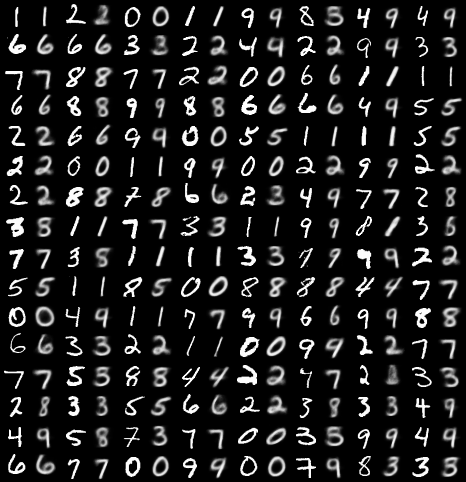 1 1 2 2 0 0 1 1 9 9 8 5 4 9 4 9
6 6 6 6 3 3 2 2 4 4 2 2 9 9 3 3
7 7 8 8 7 7 2 2 0 0 6 6 1 1 1 1
6 6 8 8 9 9 8 8 6 6 6 6 4 9 5 5
2 2 6 6 9 9 0 0 5 5 1 1 1 1 5 5
2 2 0 0 1 1 9 9 0 0 2 2 9 9 2 2
2 2 8 8 7 8 6 6 2 3 4 9 7 7 2 8
3 8 1 1 7 7 3 3 1 1 9 9 8 1 3 5
7 7 3 8 1 1 1 1 3 3 7 9 9 9 2 2
5 5 1 1 8 5 0 0 8 8 8 8 4 4 7 7
0 0 4 9 1 1 7 7 9 9 6 6 9 9 8 8
6 6 3 3 2 2 1 1 0 0 9 9 2 2 7 7
7 7 5 5 8 8 4 4 2 2 4 7 2 3 3
2 8 3 3 5 5 6 6 2 2 3 8 3 3 4 9
4 9 5 8 7 3 7 7 0 0 3 5 9 9 4 9
6 6 7 7 0 0 9 9 0 0 7 9 8 3 3 3